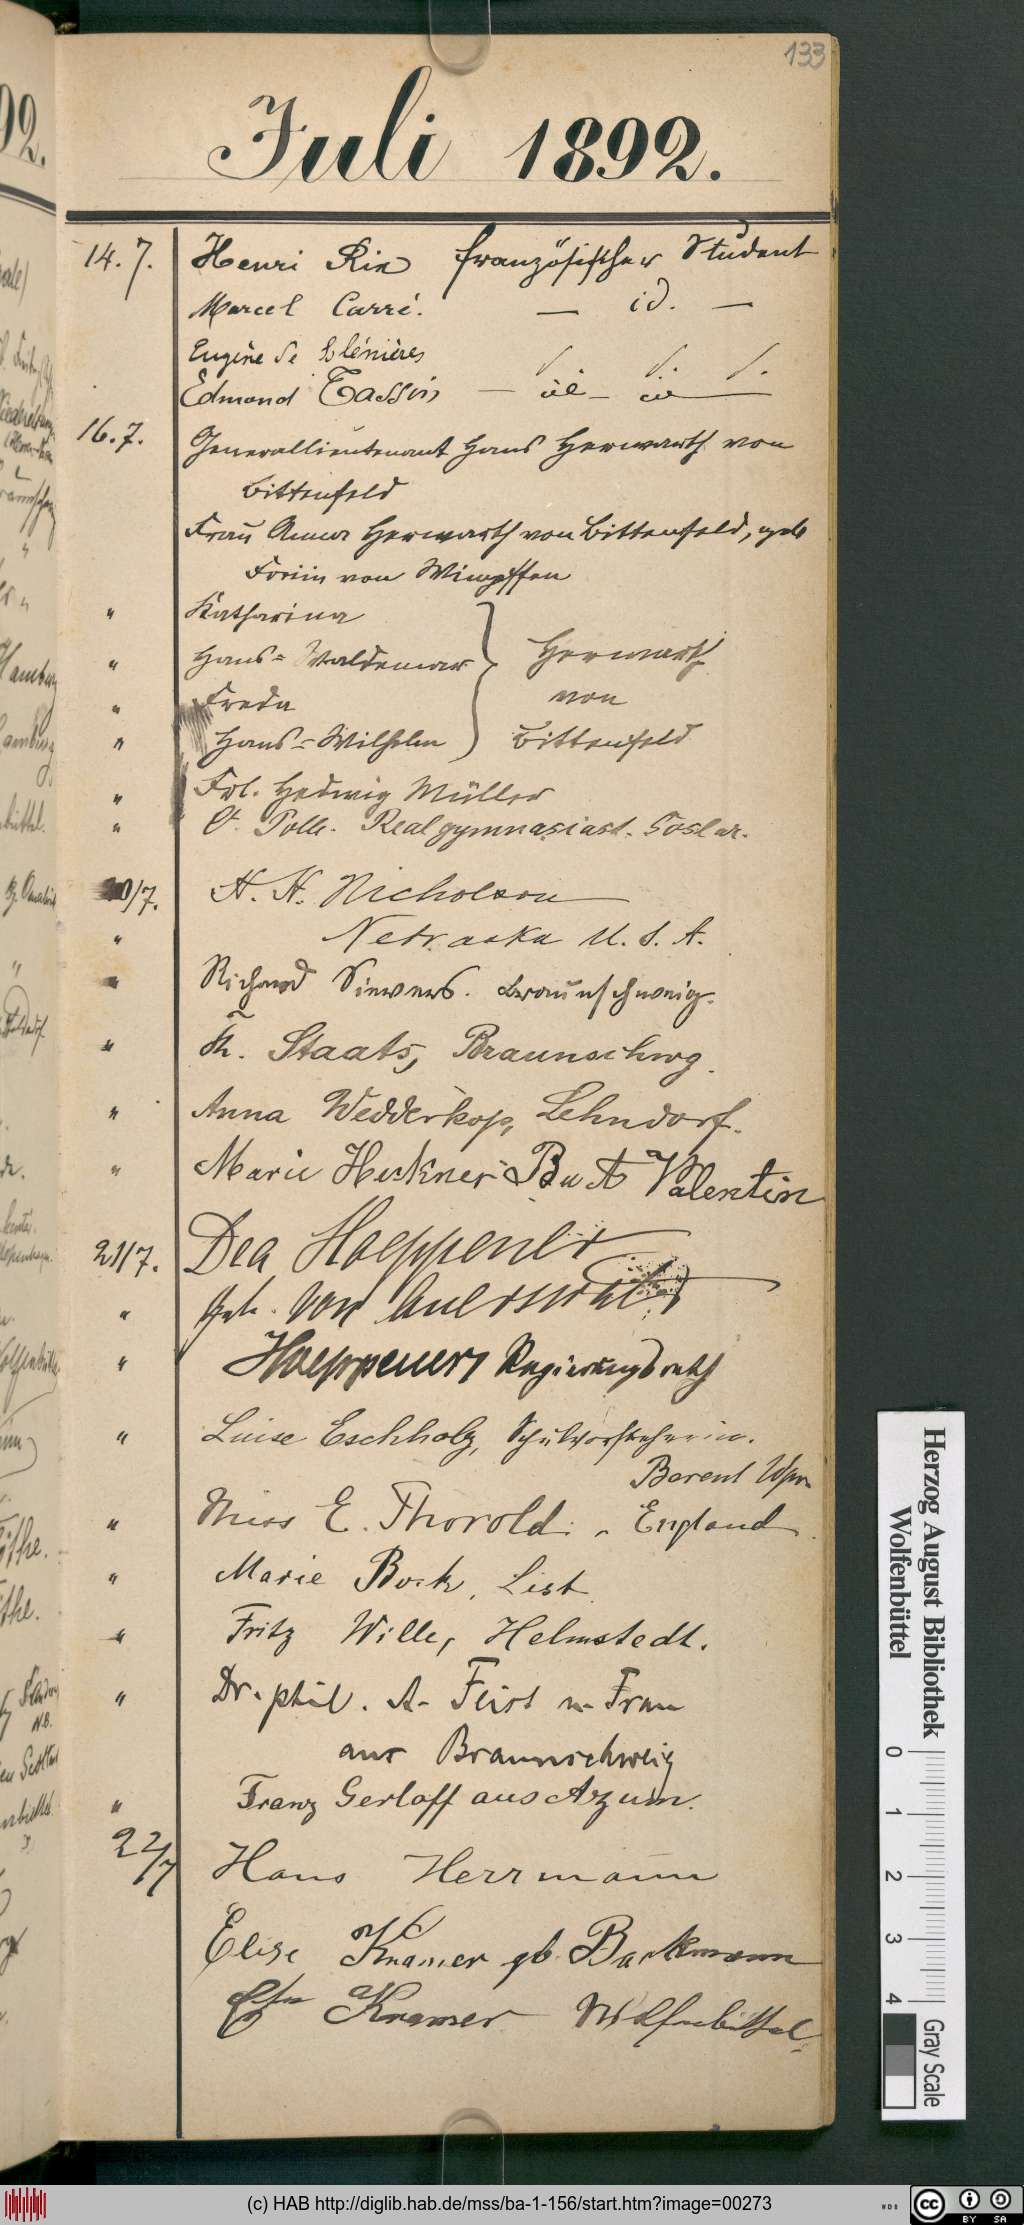 133
Juli 1892.
14. 7. Henri Rie französischer Student
Marcel Carré. — id. —
Eugène de
Edmond Tassis
16. 7. Generallieutenant Hans Herwarth von
Bittenfeld
Frau Anna Herwarth von Bittenfeld, geb
Freiin von Wimpffen
" Katharina
" Hans-Waldemar } Herwarth
" Freda von
" Hans-Wilhelm Bittenfeld
" Frl. Hedwig Müller
" O. Polle. Realgymnasiast. Goslar.
20/7. H. H. Nicholson
" Nebraska U. S. A.
" Richard Sievers. Braunschweig.
" Staats, Braunschwg.
" Anna Wedderkop, Lehndorf.
" Marie Heckner Valentin
21/7. Dea Hoeppener
" geb. von Auerswald
" Hoeppener, Regierungsrath
" Luise Eschholz, Schulvorsteherin.
Berent Wpr.
" Miss E. Thorold. England.
" Marie Bock, List
" Fritz Wille, Helmstedt.
" Dr. phil. A. Feist u. Frau
aus Braunschweig
" Franz Gerloff aus Atzum.
22/7 Hans Herrmann
Elise Kramer gb. Backmann
Kramer Wolfenbüttel.
Herzog August Bibliothek
Wolfenbüttel
0 1 2 3 4
Gray Scale
(c) HAB http://diglib.hab.de/mss/ba-1-156/start.htm?image=00273
WDB
cc
BY SA